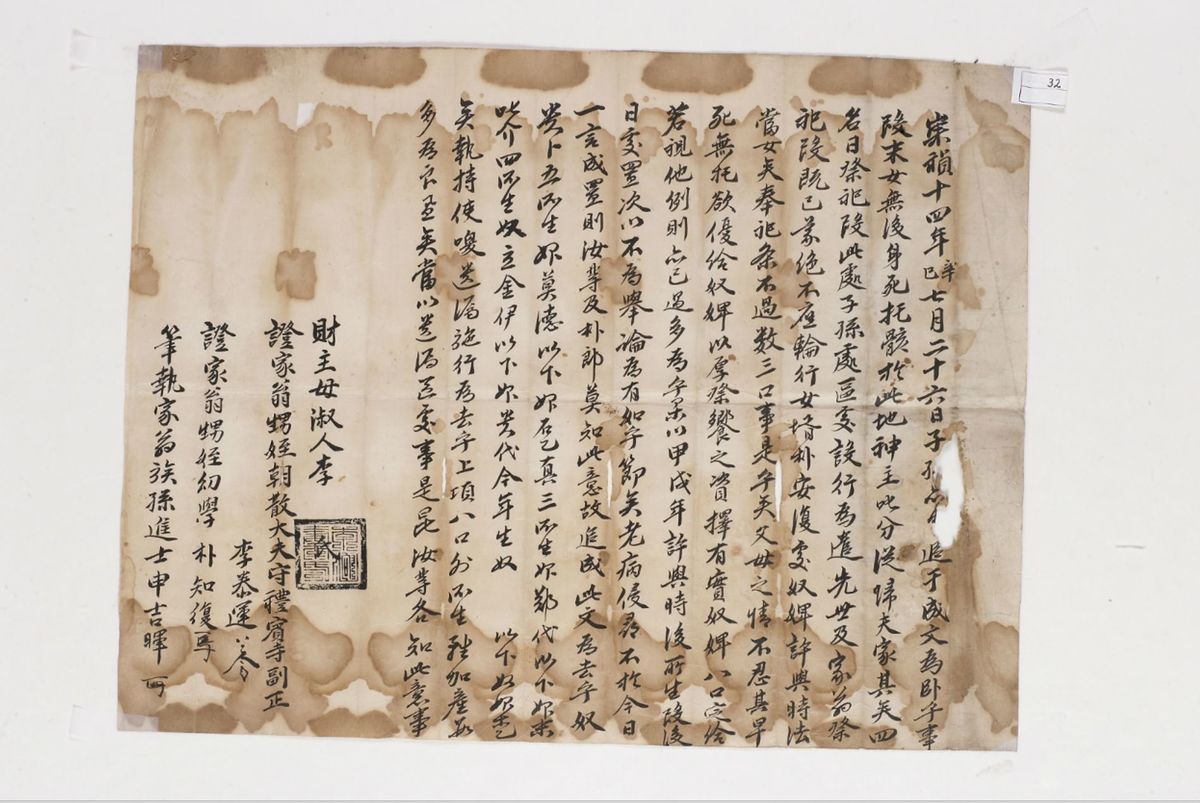 崇禎十四年辛巳七月二十六日子孫 追于成文為臥乎事
段末女無後身死托骸於此地神主此分從歸夫家其矣四
名日祭祀段此處子孫處區處設行為遣先世及家翁祭
祀段既已蒙絶不應輪行女壻朴安復處奴婢許與時法
當女矣奉祀条不過数三口事是乎矣父母之情不忍其早
死無托欲優給奴婢以厚祭饗之資擇有實奴婢八口定給
若視他例則亦已過多為乎等以甲戌年許與時後所生段後
日處置次以不為擧論為有如乎節矣老病侵尋不於今日
一言成置則汝輩及朴郎莫知此意故追成此文為去乎奴
貴卜五所生婢莫德以下婢右乙真三所生婢鄭代以下婢末
叱介四所生奴立金伊以下婢貴代今年生奴 以下奴婢乙
矣執持使喚是遣施行為去乎上項八口外所生雖加産最
多為良置矣當以遺漏區處事是昆汝等各知此意事
財主母淑人李
證家翁甥姪朝散大夫守禮賓寺副正
李泰運
證家翁甥姪幼學 朴知復
筆執家翁族孫進士申吉暉
32